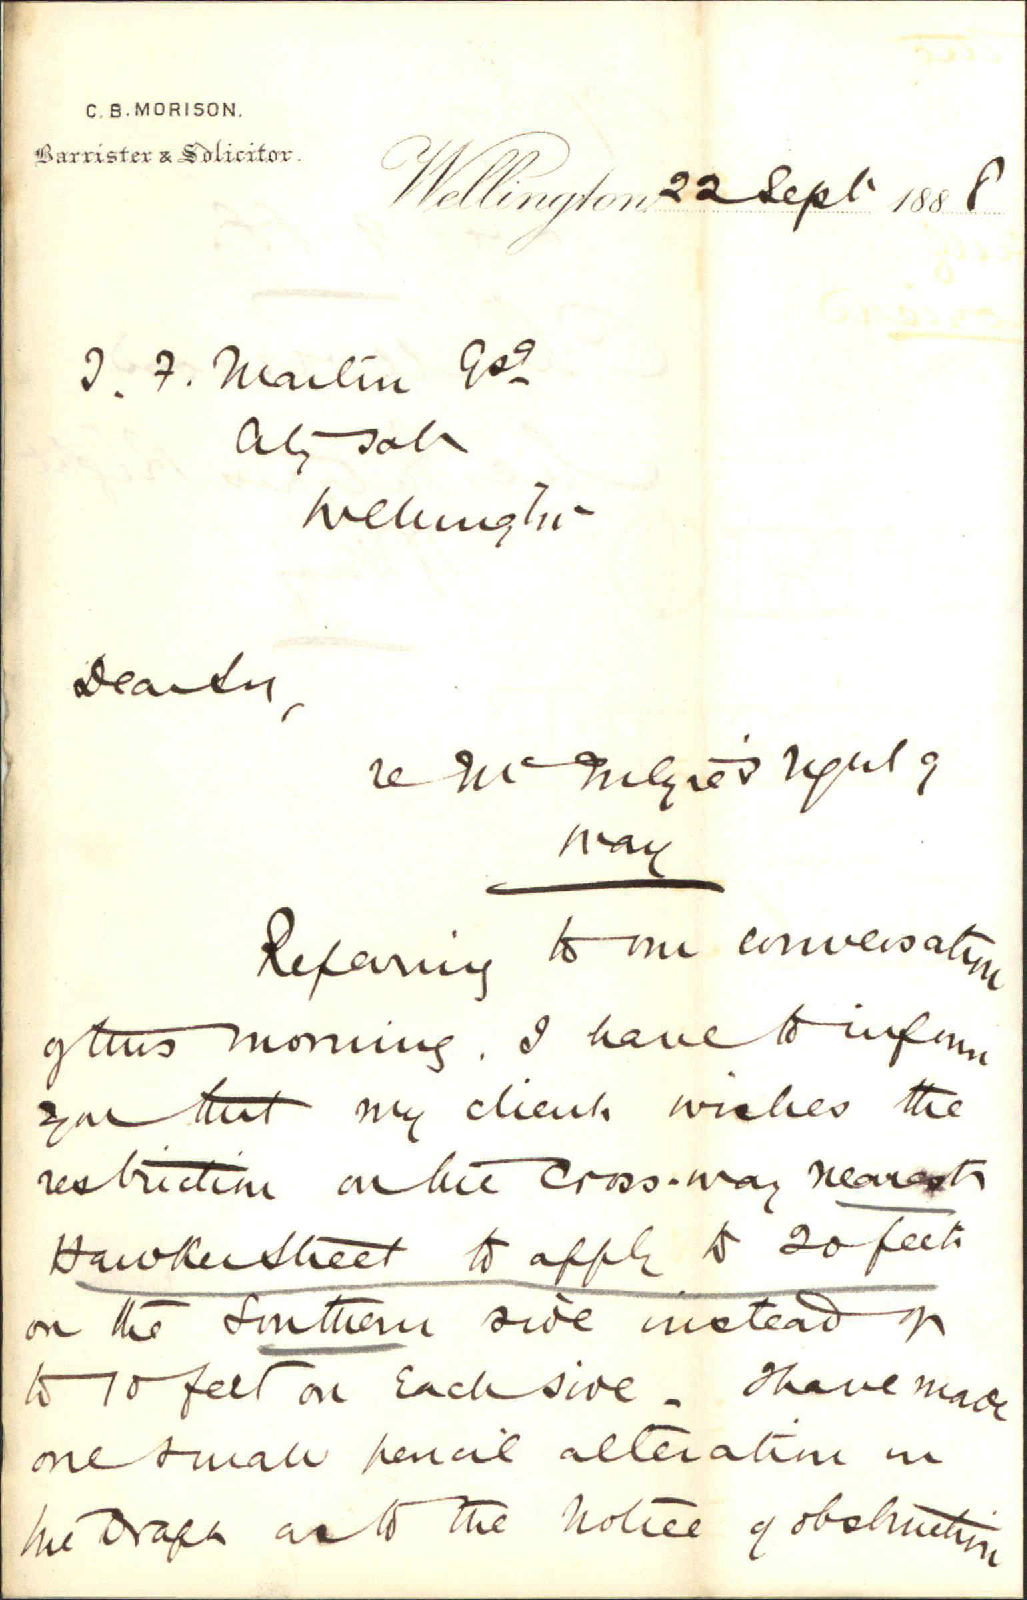 C. B. MORISON.
Barrister & Solicitor.
Wellington, 22 Sept 1888
T. F. Martin Esq
City Solr
Wellington
Dear Sir,
re Mc Intyre's right of
way
Referring to our conversation
of this morning. I have to inform
you that my client wishes the
restriction on the cross-way nearest
Hawker Street to apply to 20 feet
on the Southern side instead of
to 10 feet on each side. I have made
one small pencil alteration in
the draft as to the notice of obstruction